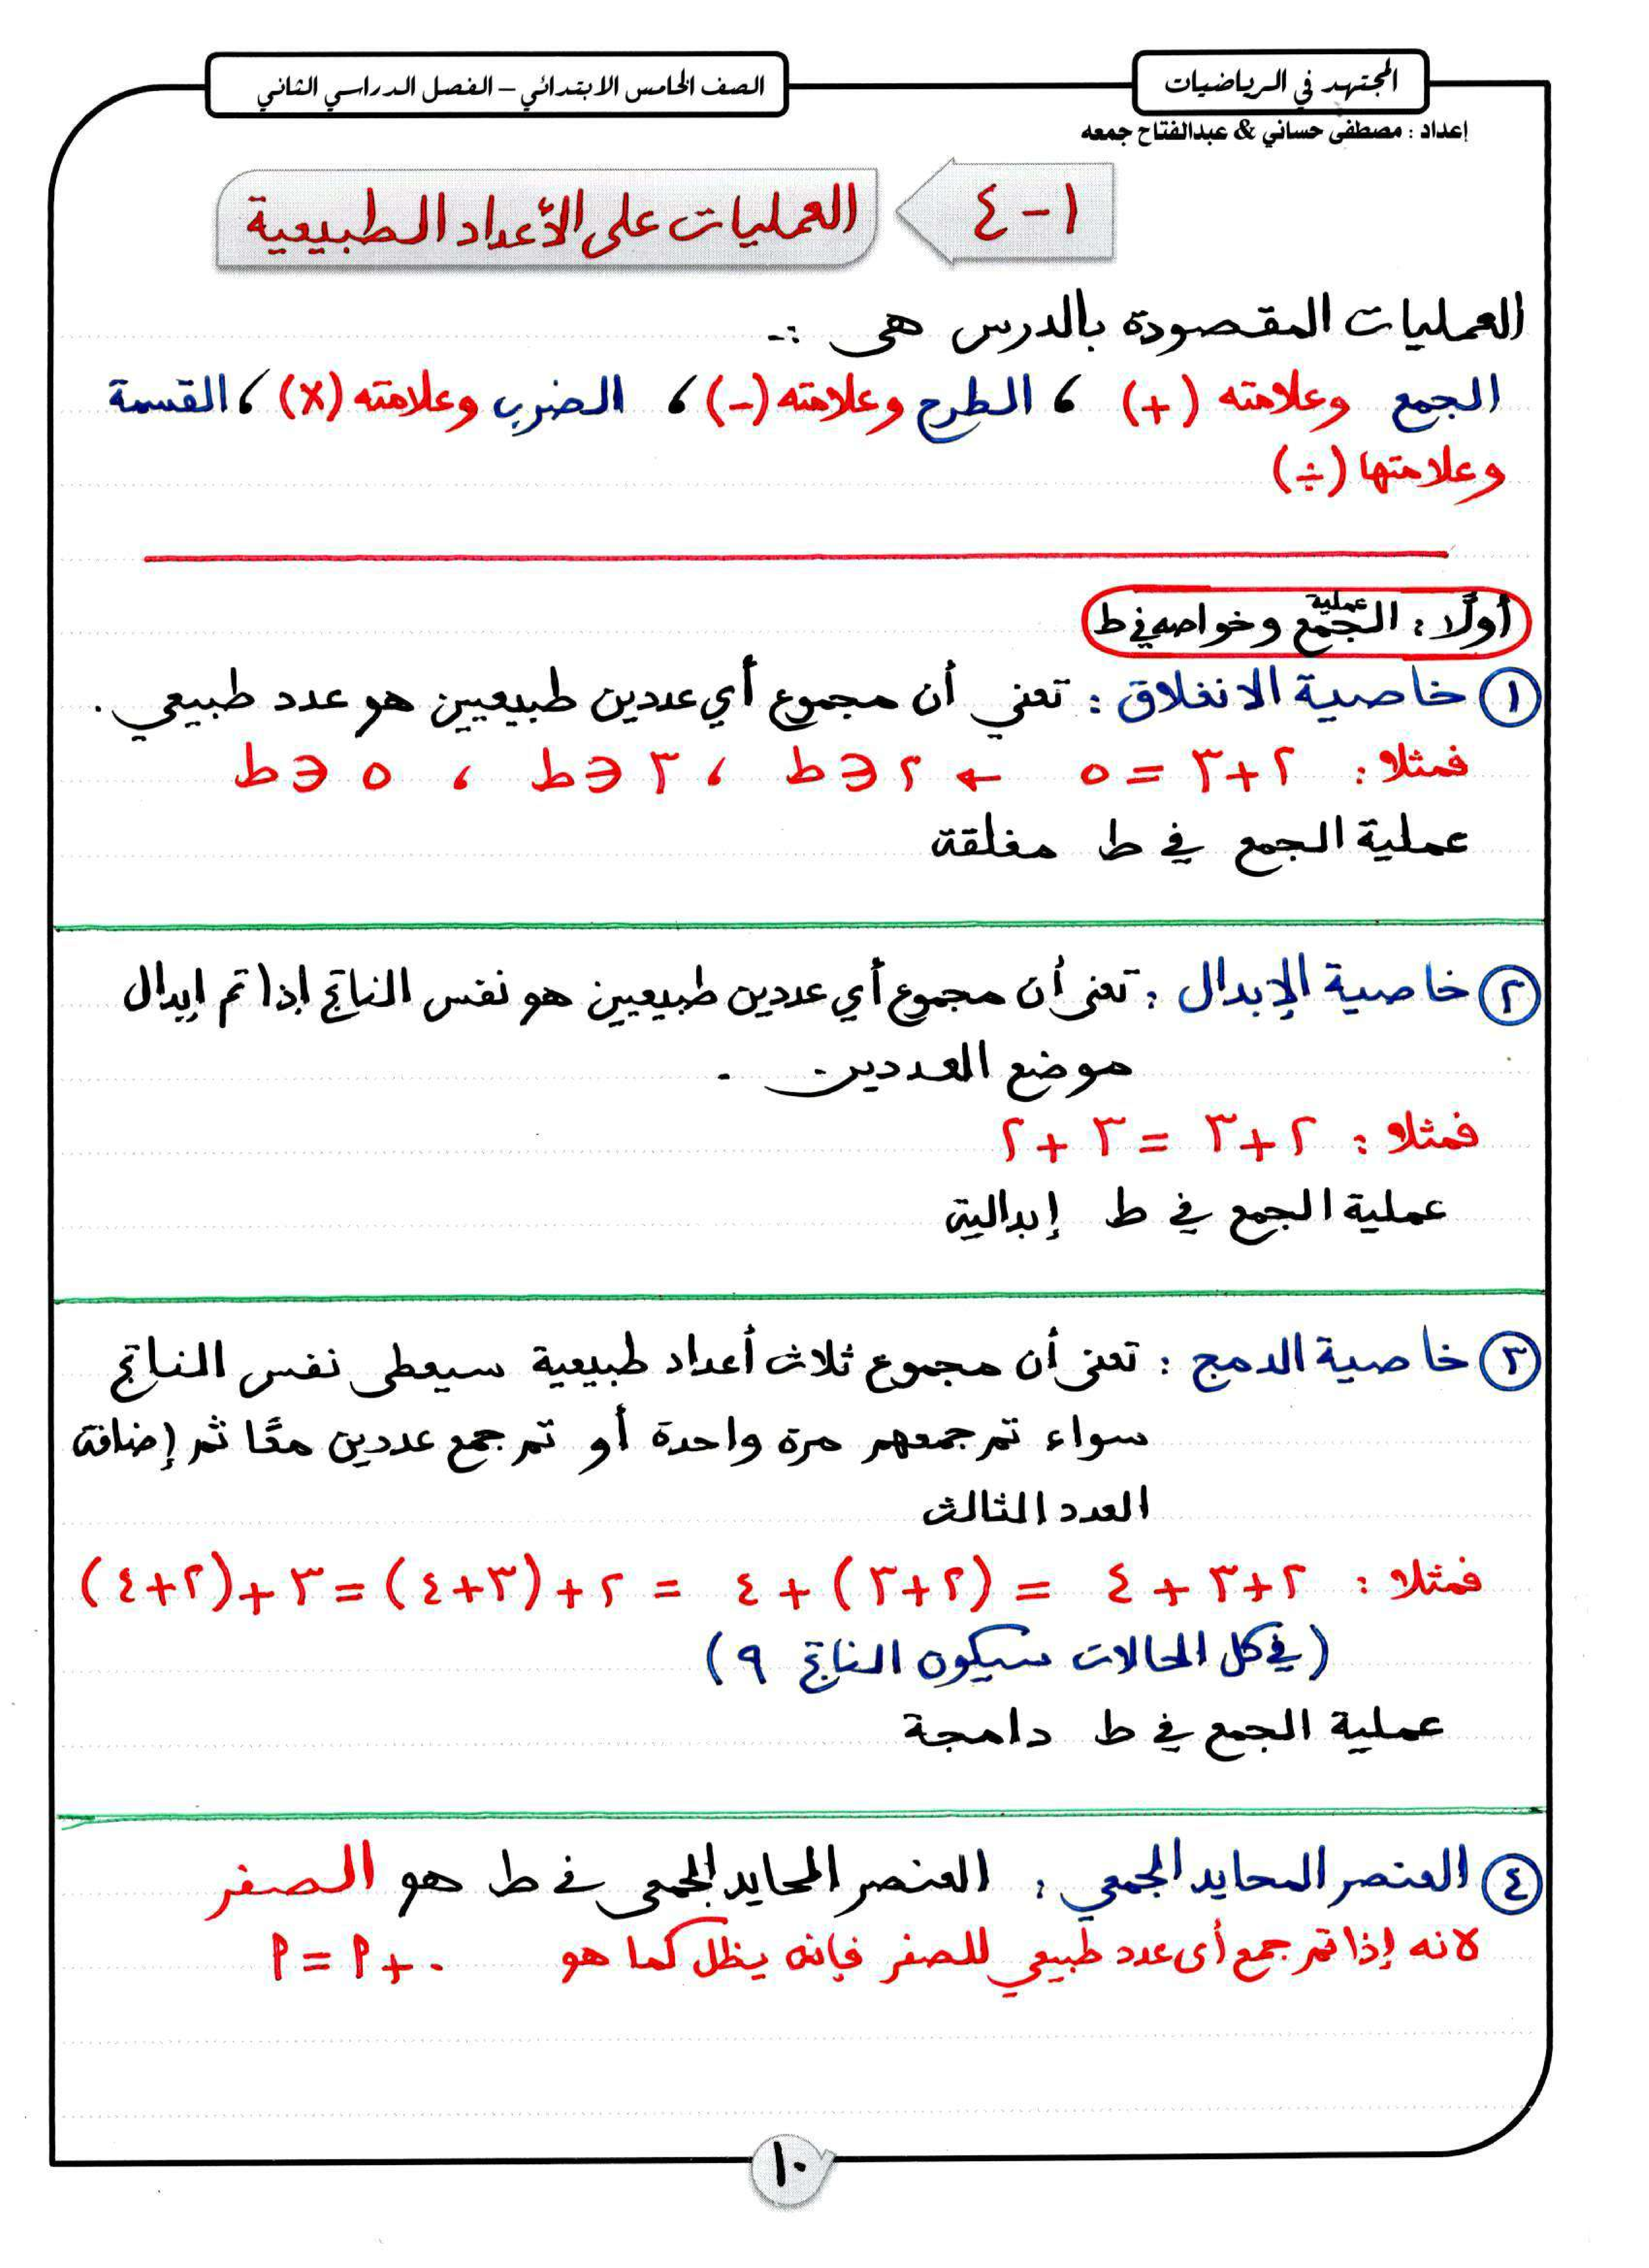 المجتهد في الرياضيات
الصف الخامس الابتدائي – الفصل الدراسي الثاني
إعداد : مصطفى حساني & عبدالفتاح جمعه
١ - ٤
العمليات على الأعداد الطبيعية
العمليات المقصودة بالدرس هى :-
الجمع وعلامته (+) ، الطرح وعلامته (-) ، الضرب وعلامته (×) ، القسمة
وعلامتها (÷)
أولًا : عملية الجمع وخواصه في ط
١ خاصية الانغلاق : تعني أن مجموع أي عددين طبيعيين هو عدد طبيعي .
فمثلا : ٢ + ٣ = ٥ ← ٢ ∈ ط ، ٣ ∈ ط ، ٥ ∈ ط
عملية الجمع في ط مغلقة
٢ خاصية الإبدال : تعنى أن مجموع أي عددين طبيعيين هو نفس الناتج إذا تم إبدال
موضع العددين .
فمثلا : ٢ + ٣ = ٣ + ٢
عملية الجمع في ط إبدالية
٣ خاصية الدمج : تعنى أن مجموع ثلاث أعداد طبيعية سيعطى نفس الناتج
سواء تم جمعهم مرة واحدة أو تم جمع عددين معًا ثم إضافة
العدد الثالث
فمثلا : ٢ + ٣ + ٤ = (٢ + ٣) + ٤ = ٢ + (٣ + ٤) = ٣ + (٢ + ٤)
(في كل الحالات سيكون الناتج ٩)
عملية الجمع في ط دامجة
٤ العنصر المحايد الجمعي : العنصر المحايد الجمعى في ط هو الصفر
لانه إذا تم جمع أى عدد طبيعي للصفر فإنه يظل كما هو ٠ + ٩ = ٩
١٠